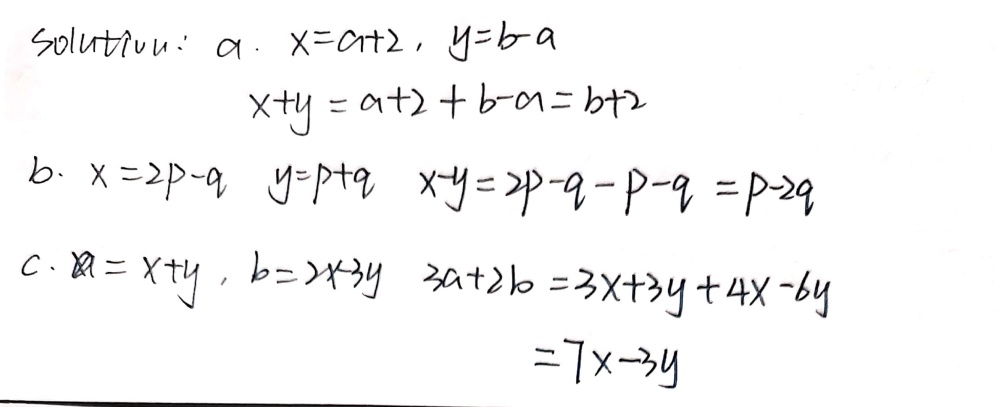 Solution: a. x=a+2, y=b-a
x+y = a+2+b-a=b+2
b. x=2p-q y=p+q x-y=2p-q-p-q=p-2q
c. a=x+y, b=2x-3y 3a+2b=3x+3y+4x-6y
=7x-3y